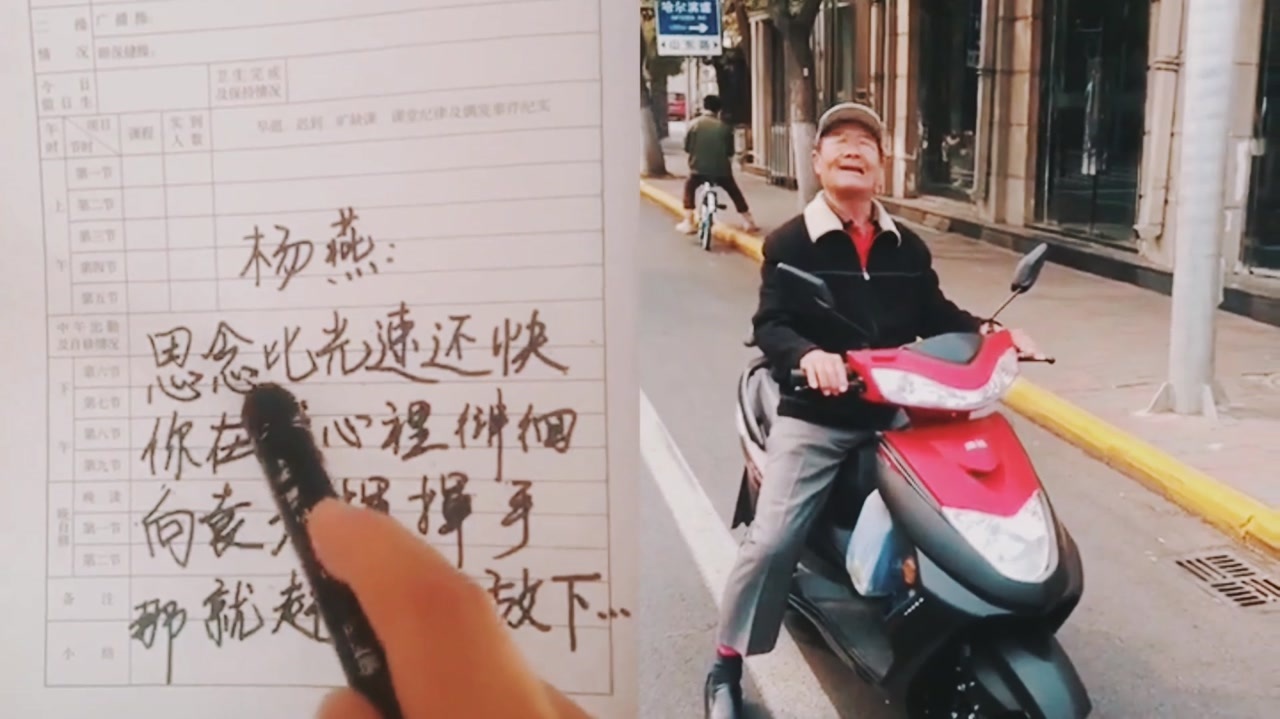 二操
情况
广播操:
眼保健操:
今日
值日生
卫生完成
及保持情况
午时
项目
节时
课程
实到
人数
早退、迟到、旷缺课、课堂纪律及偶发事件纪实
上午
第一节
第二节
第三节
第四节
第五节
中午出勤
及自修情况
下午
第六节
第七节
第八节
第九节
晚自修
晚读
第一节
第二节
备注
小结
杨燕:
思念比光速还快
你在 心裡徘徊
向袁 揮手
那就赶 放下...
哈尔滨道
山东路